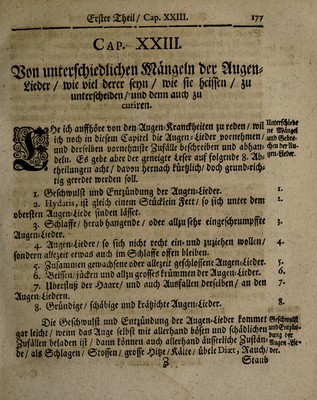 Erster Theil / Cap. XXIII. 177
CAP. XXIII.
Von unterschiedlichen Mängeln der Augen-
Lieder / wie viel derer seyn / wie sie heissen / zu
unterscheiden / und denn auch zu
curiren.
EHe ich auffhöre von den Augen-Kranckheiten zu reden / wil
ich noch in diesem Capitel die Augen-Lieder vornehmen /
und derselben vornehmste Zufälle beschreiben und abhan-
deln. Es gebe aber der geneigte Leser auf folgende 8. Ab-
theilungen acht / davon hernach kürtzlich / doch grund-rich-
tig geredet werden soll.
Unterschiede
ne Mängel
und Gebre-
chen der Au-
gen-Lieder.
1. Geschwulst und Entzündung der Augen-Lieder. 1.
2. Hydatis, ist gleich einem Stücklein Fett / so sich unter dem 2.
obersten Augen-Liede finden lässet.
3. Schlaffe / herab hangende / oder allzusehr eingeschrumpffte 3.
Augen-Lieder.
4. Augen-Lieder / so sich nicht recht ein- und zuziehen wollen / 4.
sondern allezeit etwas auch im Schlaffe offen bleiben.
5. Zusammen gewachsene oder allezeit geschlossene Augen-Lieder. 5.
6. Beissen / jücken und allzu grosses krümmen der Augen-Lieder. 6.
7. Uberfluß der Haare / und auch Ausfallen derselben / an den 7.
Augen-Liedern.
8. Gründige / schäbige und krätzichte Augen-Lieder. 8.
Die Geschwulst und Entzündung der Augen-Lieder kommet
gar leicht / wenn das Auge selbst mit allerhand bösen und schädlichen
Zufällen beladen ist / dann können auch allerhand äusserliche Zustän-
de / als Schlagen / Stossen / grosse Hitze / Kälte / übele Dixt, Rauch /
Geschwulst
und Entzün-
dung der
Augen-Lie-
der.
Z Staub